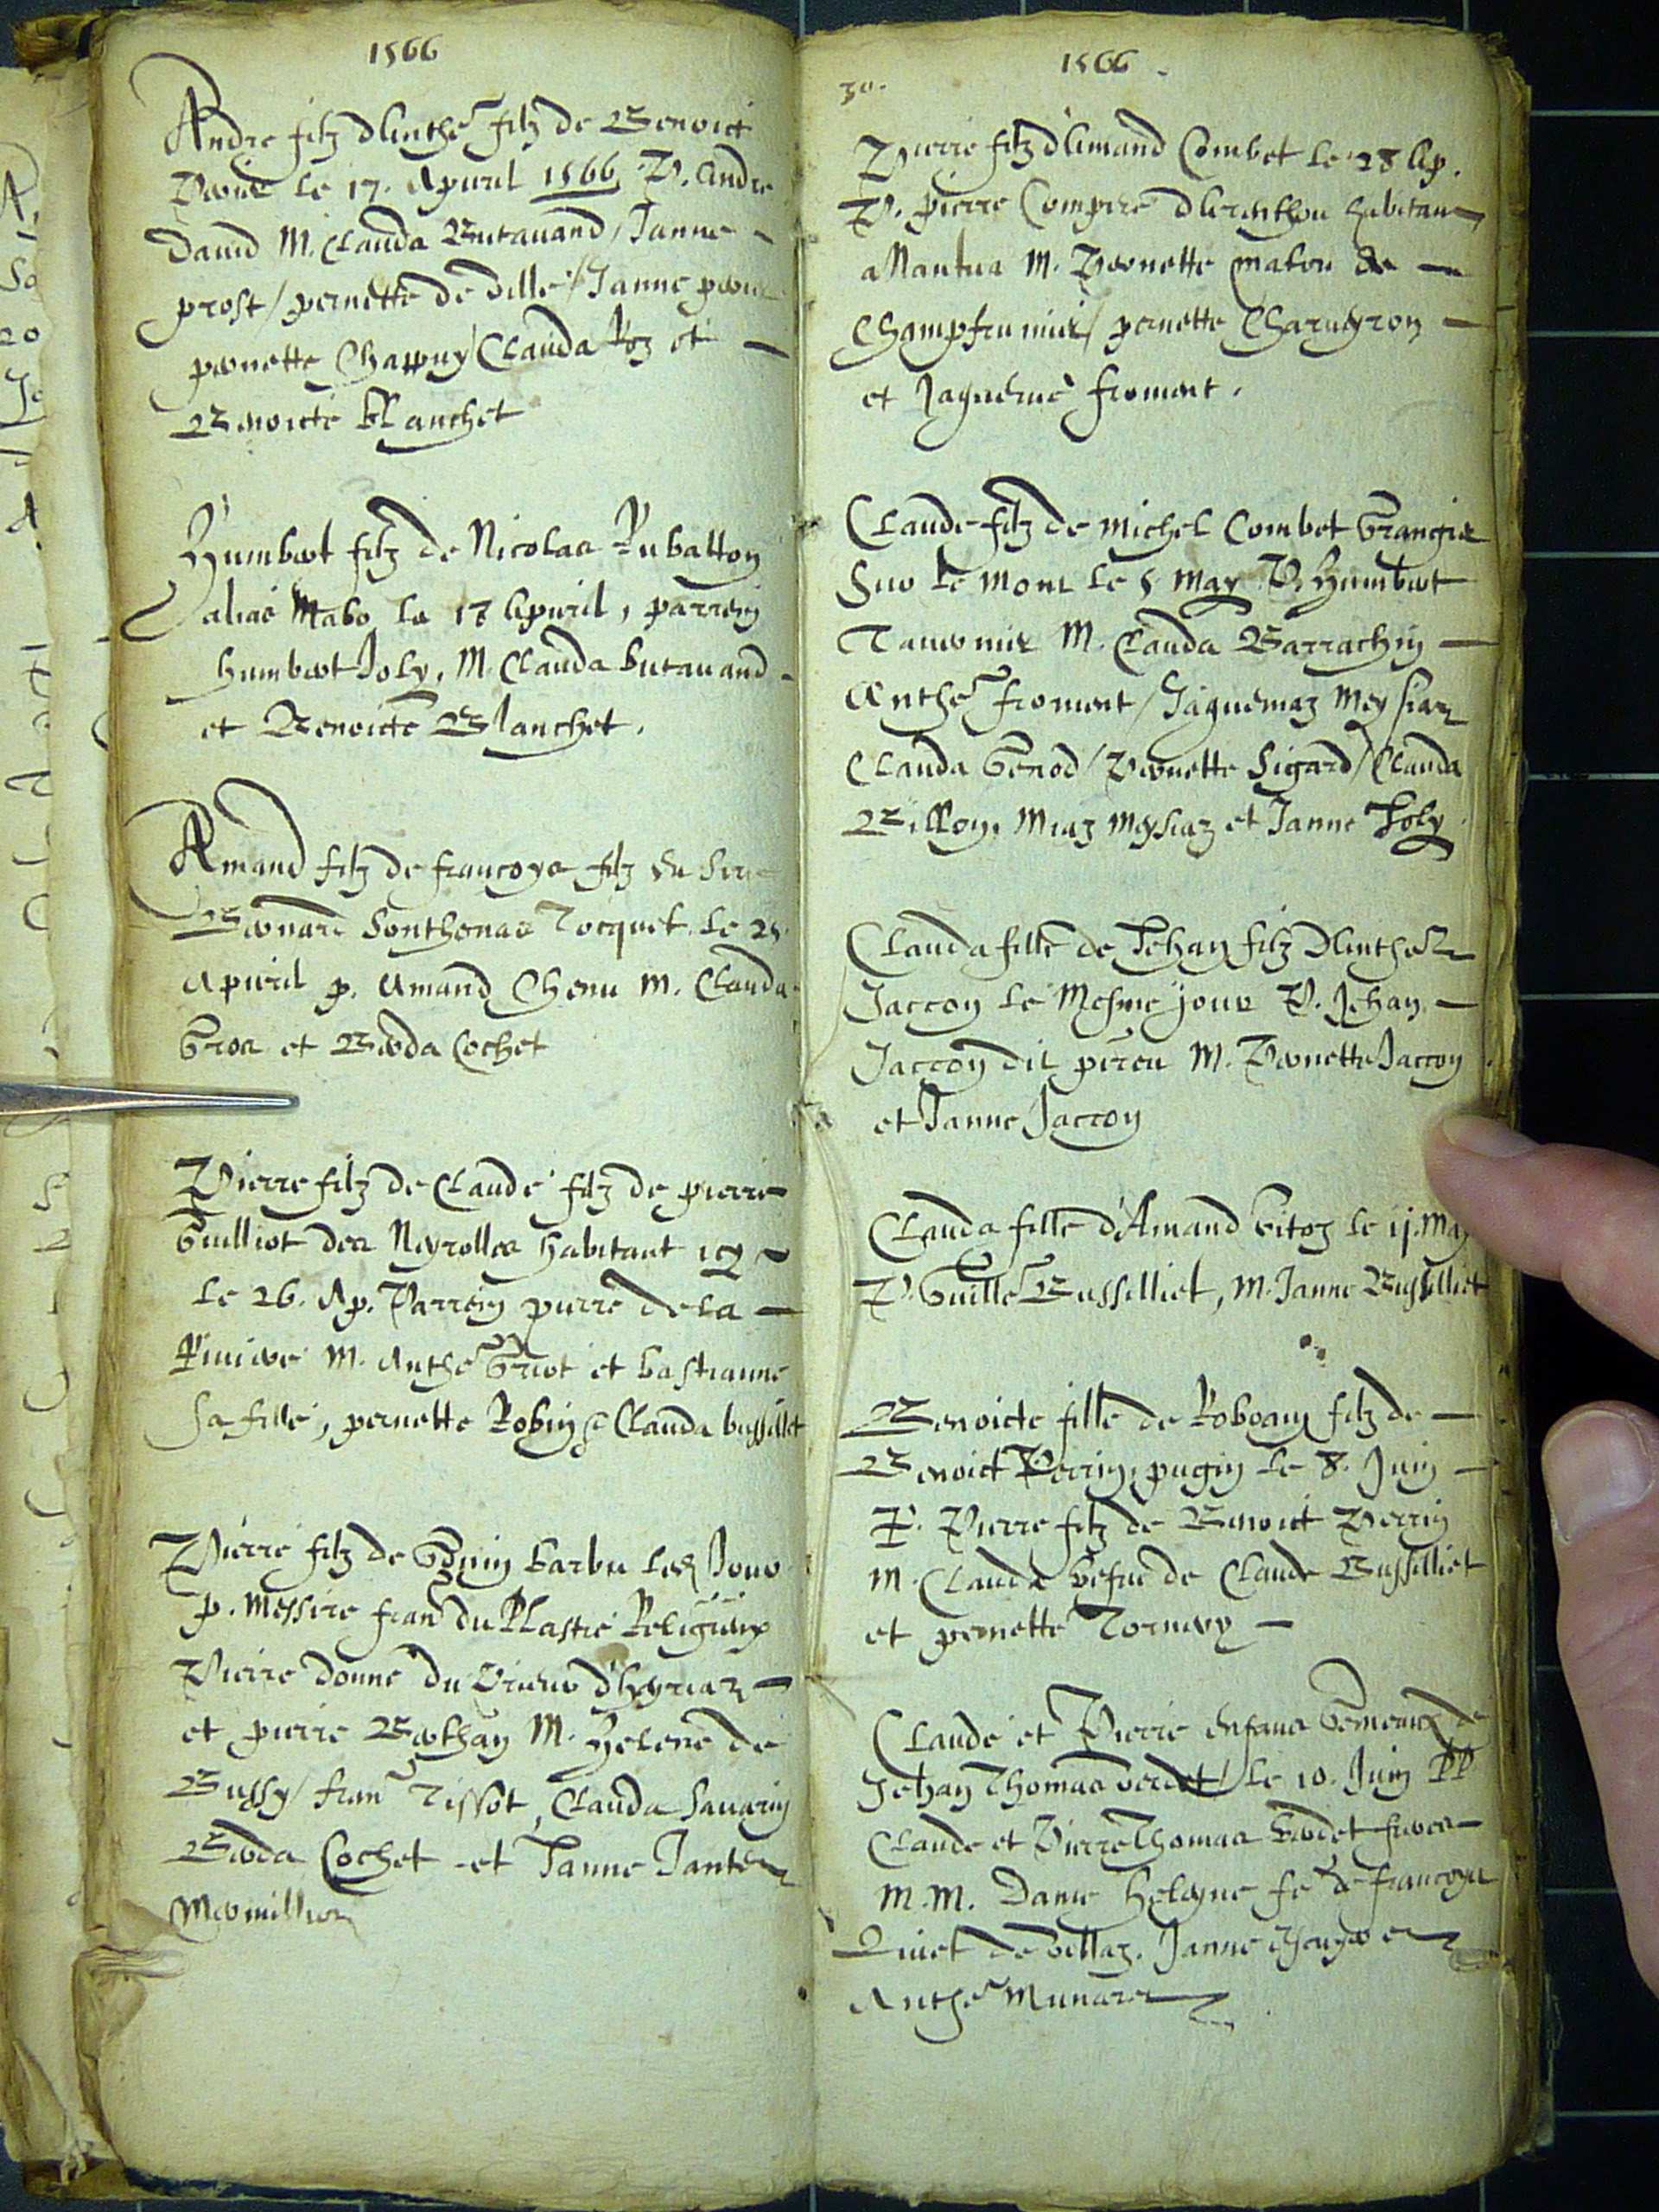 1566
Andre filz d'Anthe filz de Benoict
Perrier le 17. Apvril 1566, P. Andre
David M. Clauda Butavand / Janne
prost / pernette de ville / Janne
pernette Chappuy / Clauda Roz et
Benoicte Blanchet
Humbert filz de Nicolas Rubatton
alias Mabo le 18 Apvril, parrein
humbert Joly, M. Clauda butavand
et Benoicte Blanchet.
Amand filz de francoys filz du Sire
Bernard Sonthonas Tocquet le 25
Apvril p. Amand Chenu M. Clauda
Gros et Berda Cochet
Pierre filz de Claude filz de pierre
Guilliot des Neyrolles habitant icy
le 26. Ap. Parrein pierre de la
Riviere M. Anthe Griot et bastianne
sa fille, pernette Robin & Clauda bussillet
Pierre filz de Barbu led. Jour
p. Messire fran du Plastre Religieux
Pierre donne du Prieur d'Heyriaz
et pierre Berthan M. Helene de
Bussy / fran Tissot, Clauda Savarin
Berda Cochet et Janne Jante
Mermillion
30.
1566
Pierre filz d'Amand Combet le 28 Ap.
P. pierre Compere d'Arenthou habitan
a Nantua M. Pernette maton de
Champfrumier / pernette Charueyron
et Jaqueme froment.
Claude filz de Michel Combet Grangier
Sur le mont le 5 May P. Humbert
Tavernier M. Clauda Barrachin
Anthe froment / Jaquemaz Meysiaz
Clauda Genod / Pernette Sigard / Clauda
Billion, Miaz Meysiaz et Janne Joly
Clauda fille de Jehan filz d'Anthe
Jaccon le Mesme jour P. Jehan
Jaccon dit M. Pernette Jaccon
et Janne Jaccon
Clauda fille d'Amand Vitoz le 11. May
P. Guille Bussilliet, M. Janne Bussilliet
Benoicte fille de Roboam filz de
Benoict Perrin, pugin le 8. Juin
P. Pierre filz de Benoict Perrin
M. Clauda vefue de Claude Bussilliet
et pernette Tornery
Claude et Pierre Enfans Gemeaux de
Jehan Thomas verdet / le 10. Juin PP
Claude et Pierre Thomas verdet freres
M.M. Dame Heleyne fe de francoys
Quinet de villaz. Janne
Anthe Munaret